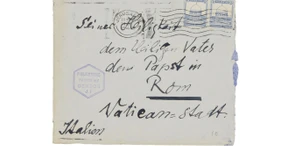 Seiner Heiligkeit
dem Heiligen Vater
dem Papst in
Rom
Vatican-Stadt.
Italien